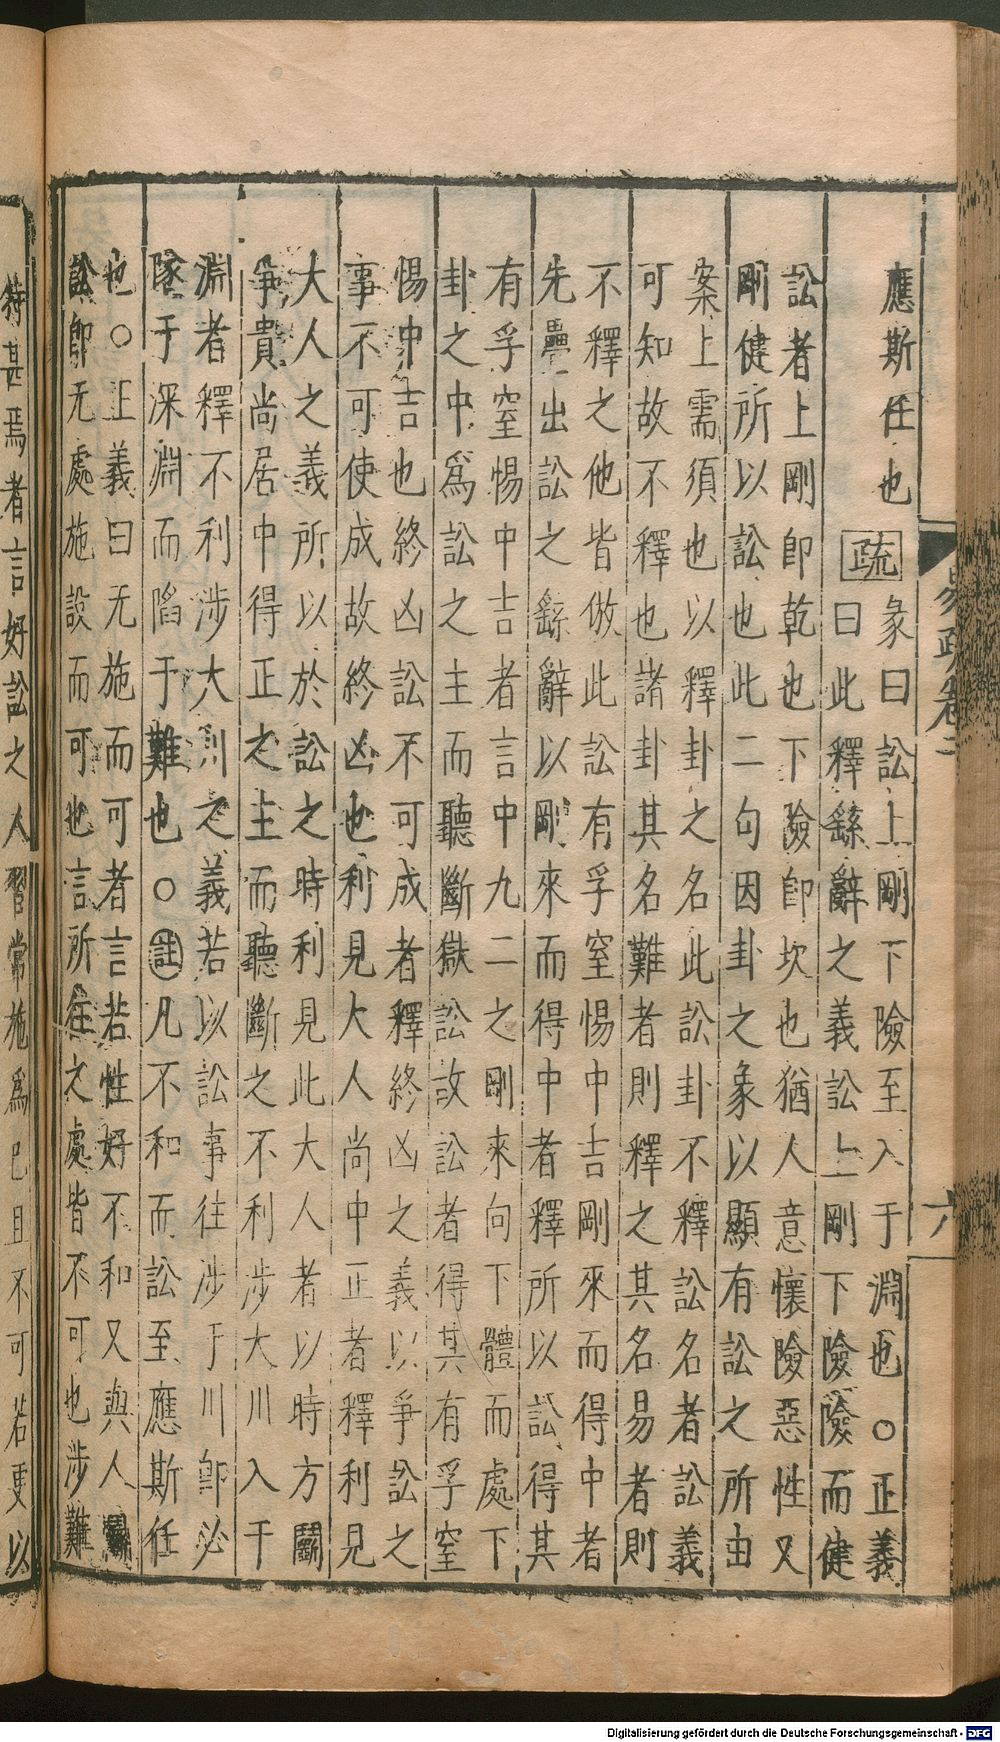 易疏卷二 六
應斯任也疏彖曰訟上剛下險至入于淵也○正義
曰此釋繇辭之義訟上剛下險險而健
訟者上剛即乾也下險即坎也猶人意懷險惡性又
剛健所以訟也此二句因卦之象以顯有訟之所由
案上需須也以釋卦之名此訟卦不釋訟名者訟義
可知故不釋也諸卦其名難者則釋之其名易者則
不釋之他皆倣此訟有孚窒惕中吉剛來而得中者
先疊出訟之繇辭以剛來而得中者釋所以訟得其
有孚窒惕中吉者言中九二之剛來向下體而處下
卦之中爲訟之主而聽斷獄訟故訟者得其有孚窒
惕中吉也終凶訟不可成者釋終凶之義以爭訟之
事不可使成故終凶也利見大人尚中正者釋利見
大人之義所以於訟之時利見此大人者以時方鬭
爭貴尚居中得正之主而聽斷之不利涉大川入于
淵者釋不利涉大川之義若以訟事往涉于川即必
隊于深淵而陷于難也○註凡不和而訟至應斯任
也○正義曰无施而可者言若性好不和又與人鬭
訟即无處施設而可也言所往之處皆不可也涉難
特甚焉者言好訟之人習常施爲已且不可若更以
Digitalisierung gefördert durch die Deutsche Forschungsgemeinschaft - DFG